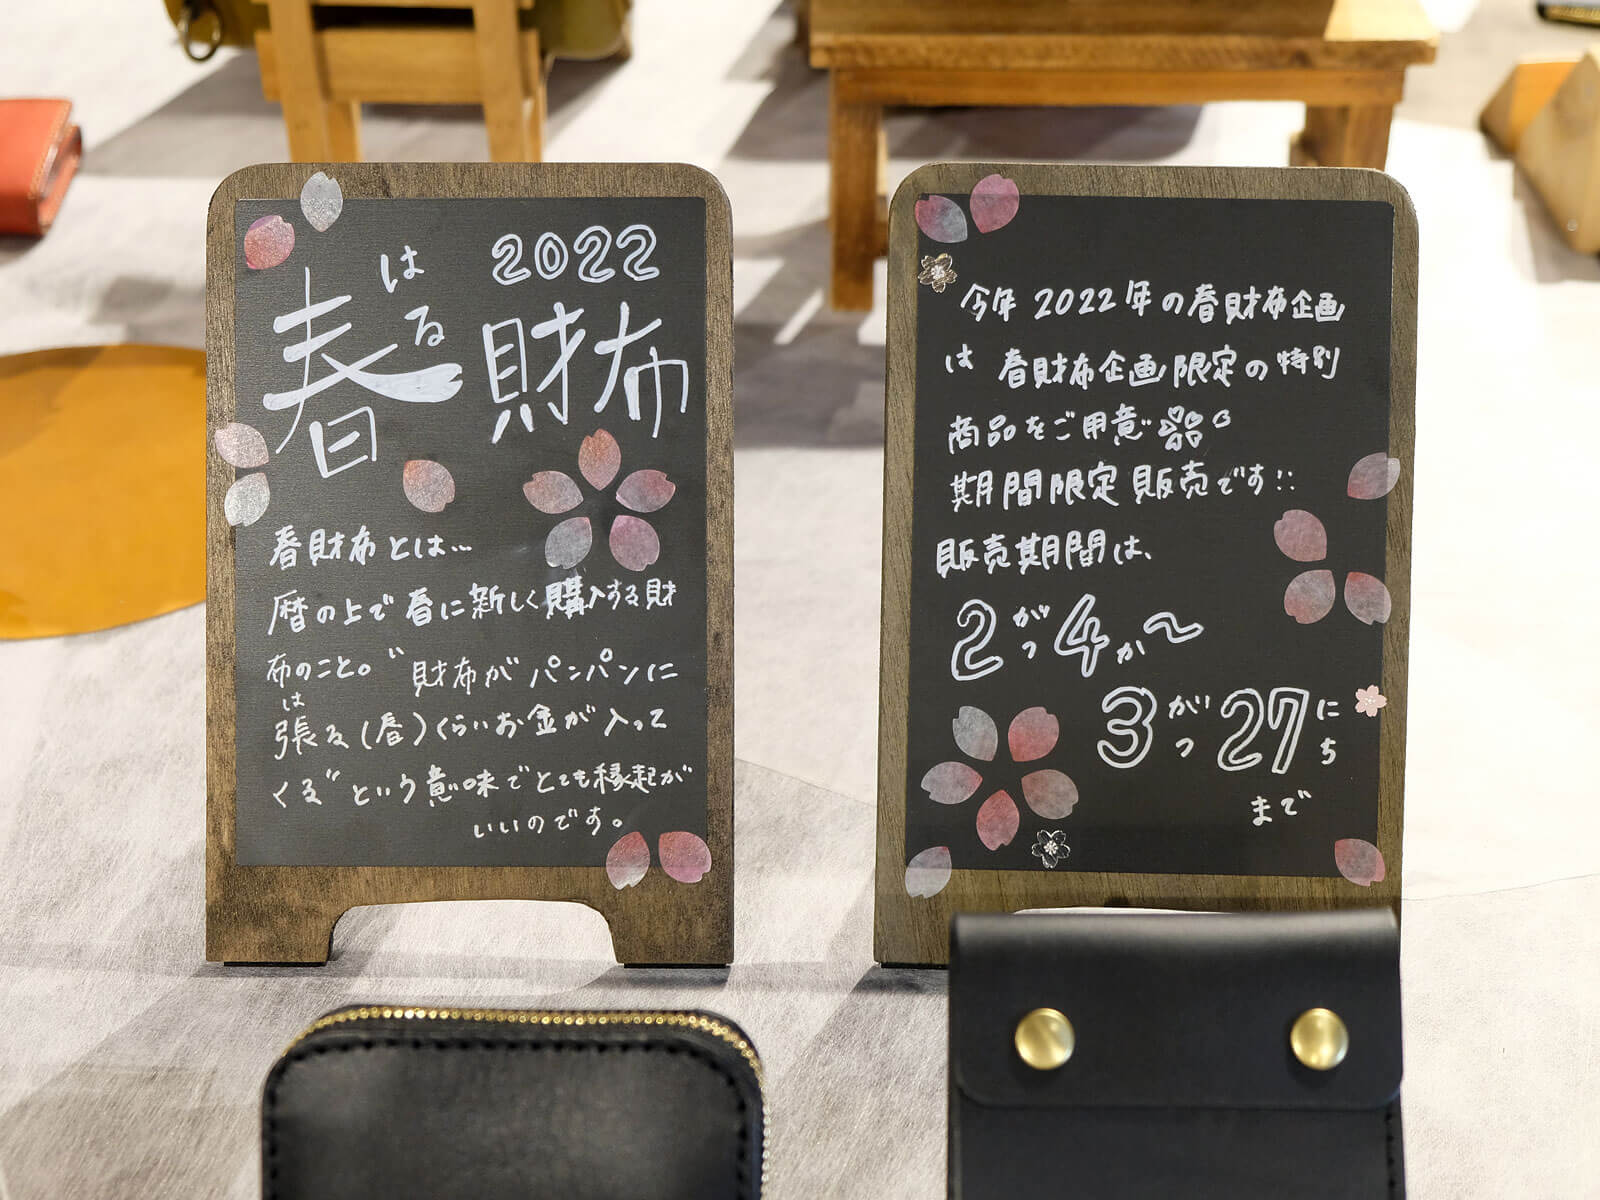 2022
春財布
はる
春財布とは…
暦の上で春に新しく購入する財
布のこと。〝財布がパンパンに
は
張る(春)くらいお金が入って
くる〟という意味でとても縁起が
いいのです。
今年 2022年の春財布企画
は 春財布企画限定の特別
商品をご用意
期間限定販売です!!
販売期間は、
2がつ4か〜
3がつ27にち
まで